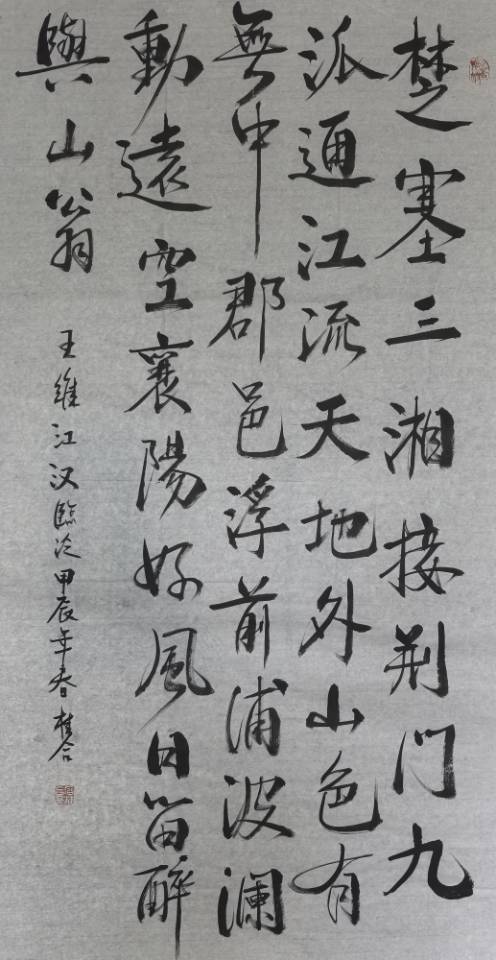 楚塞三湘接荆门九
派通江流天地外山色有
無中郡邑浮前浦波澜
動遠空襄陽好風日留醉
與山翁
王維江汉臨泛甲辰年春